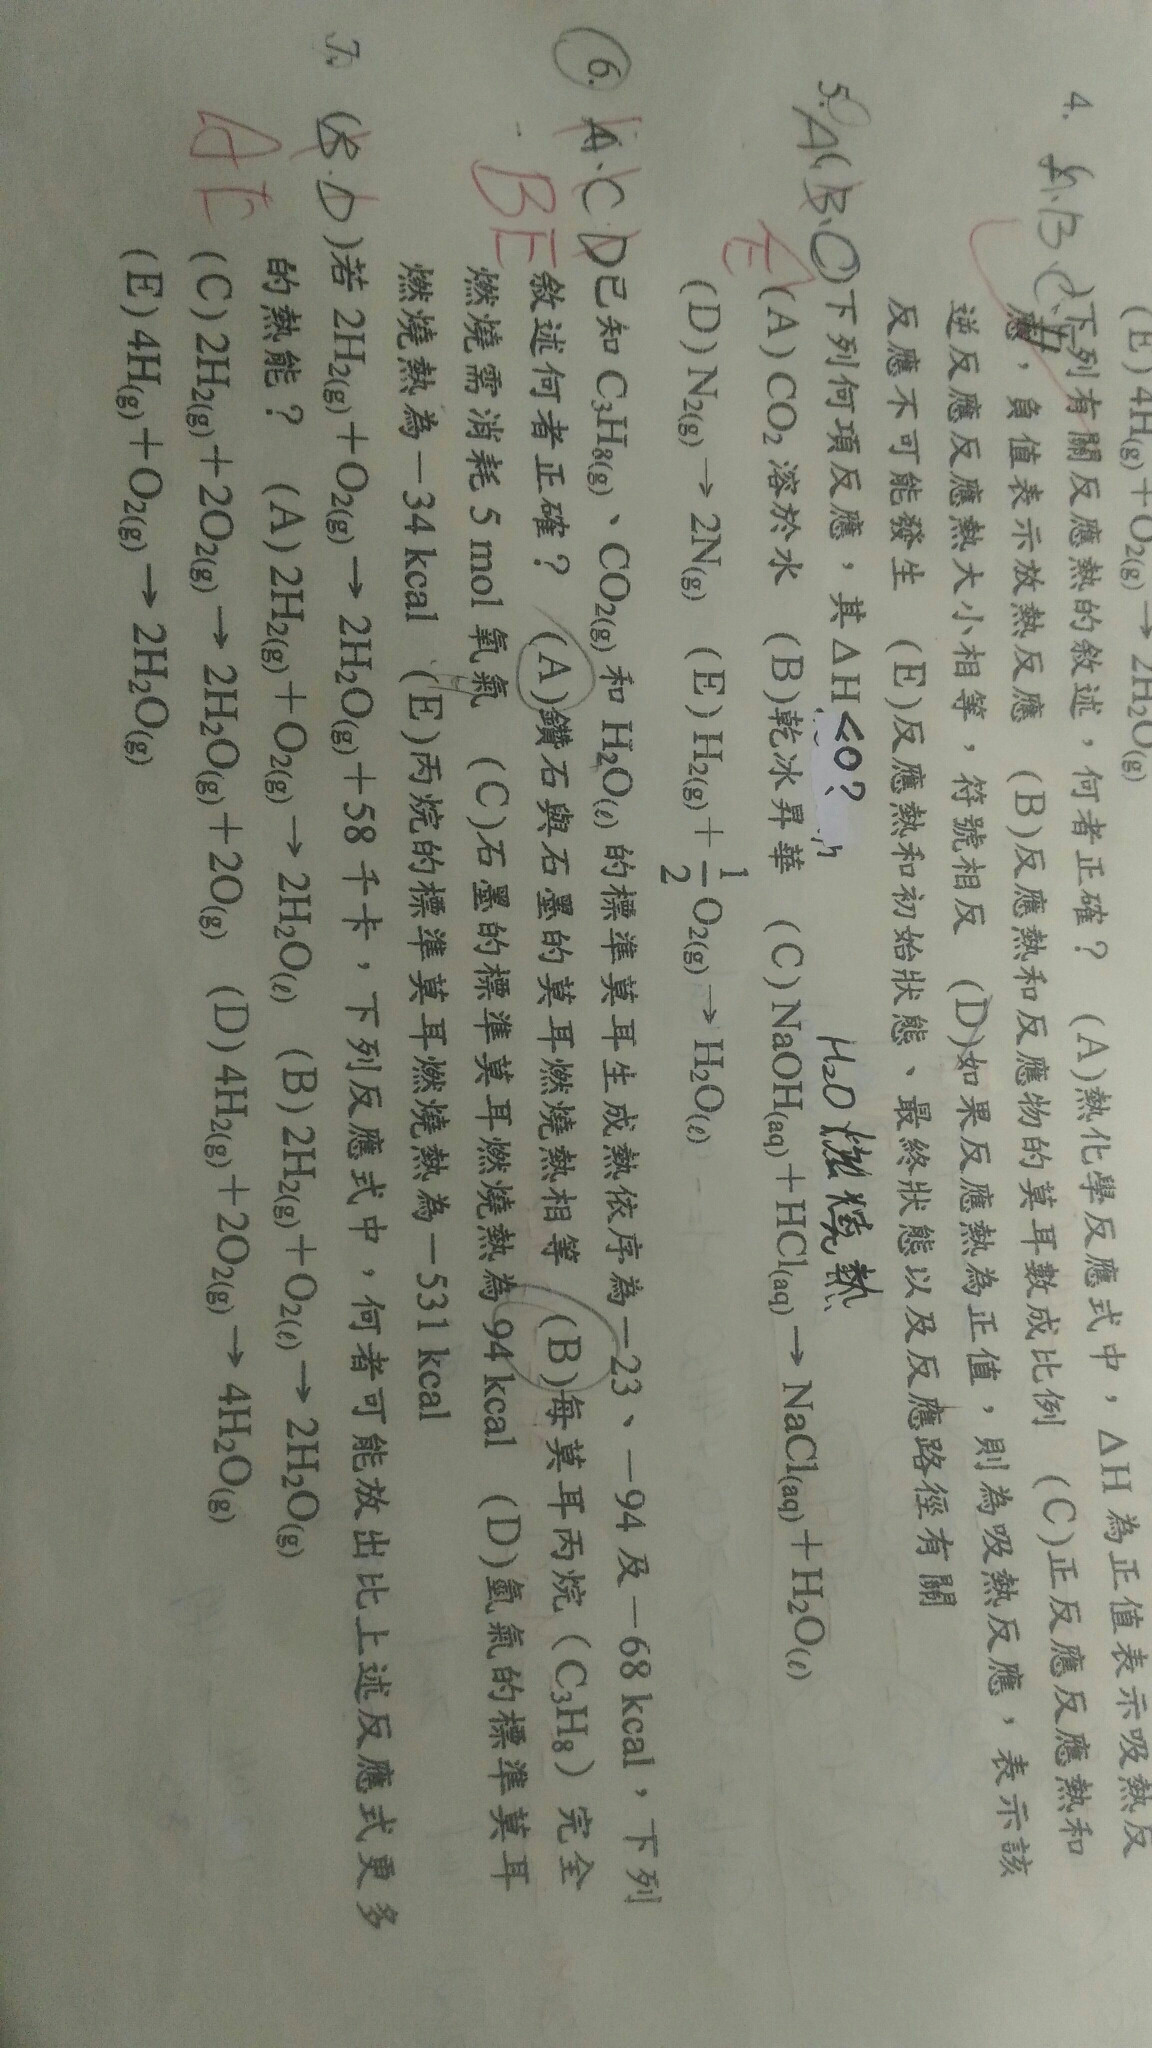 (E) 4H(g)+O2(g)→2H2O(g)
4. A.B.C 下列有關反應熱的敘述，何者正確？ (A)熱化學反應式中，ΔH 為正值表示吸熱反
應，負值表示放熱反應 (B)反應熱和反應物的莫耳數成比例 (C)正反應反應熱和
逆反應反應熱大小相等，符號相反 (D)如果反應熱為正值，則為吸熱反應，表示該
反應不可能發生 (E)反應熱和初始狀態、最終狀態以及反應路徑有關
H2O 燃燒熱
5. A(B.C)下列何項反應，其 ΔH<0？
E
(A) CO2 溶於水 (B)乾冰昇華 (C) NaOH(aq)+HCl(aq)→NaCl(aq)+H2O(ℓ)
(D) N2(g)→2N(g) (E) H2(g)+1/2O2(g)→H2O(ℓ)
6. A.C.D 已知 C3H8(g)、CO2(g)和 H2O(ℓ)的標準莫耳生成熱依序為−23、−94 及−68 kcal，下列
BE
敘述何者正確？ (A)鑽石與石墨的莫耳燃燒熱相等 (B)每莫耳丙烷（C3H8）完全
燃燒需消耗 5 mol 氧氣 (C)石墨的標準莫耳燃燒熱為 94 kcal (D)氫氣的標準莫耳
燃燒熱為−34 kcal (E)丙烷的標準莫耳燃燒熱為−531 kcal
7. (B.D)若 2H2(g)+O2(g)→2H2O(g)+58 千卡，下列反應式中，何者可能放出比上述反應式更多
AE
的熱能？ (A) 2H2(g)+O2(g)→2H2O(ℓ) (B) 2H2(g)+O2(ℓ)→2H2O(g)
(C) 2H2(g)+2O2(g)→2H2O(g)+2O(g) (D) 4H2(g)+2O2(g)→4H2O(g)
(E) 4H(g)+O2(g)→2H2O(g)